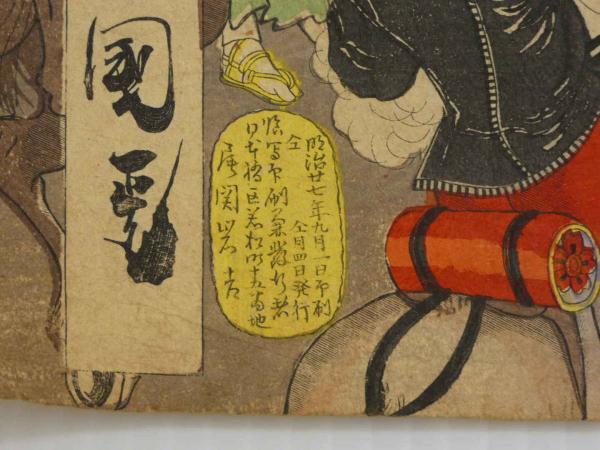 明治廿七年九月一日印刷
仝 仝月四日発行
臨写印刷兼発行者
日本橋区若松町十五番地
尾関岩吉